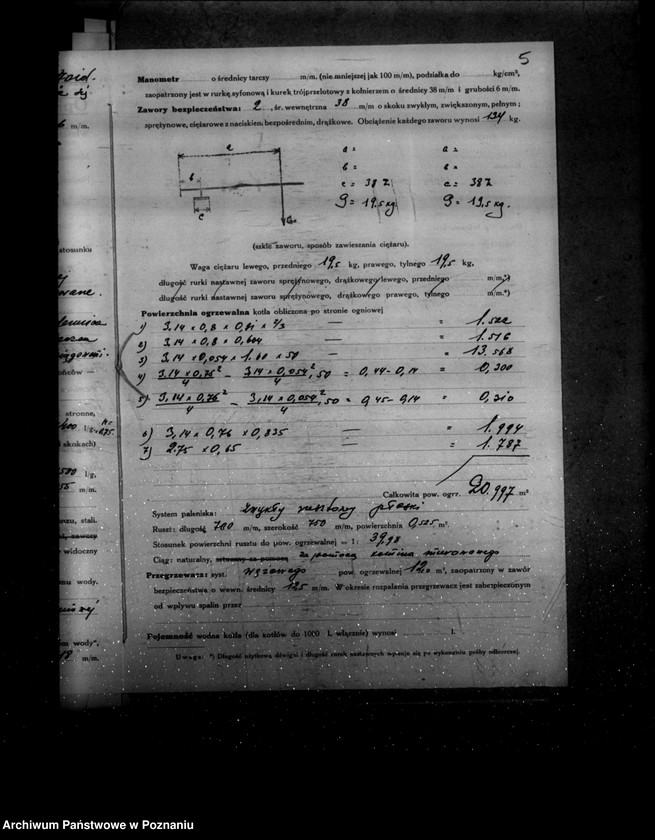 5
Manometr o średnicy tarczy m/m. (nie mniejszej jak 100 m/m), podziałka do kg/cm²,
zaopatrzony jest w rurkę syfonową i kurek trójprzelotowy z kołnierzem o średnicy 38 m/m i grubości 6 m/m.
Zawory bezpieczeństwa: 2, śr. wewnętrzna 38 m/m o skoku zwykłym, zwiększonym, pełnym;
sprężynowe, ciężarowe z naciskiem bezpośrednim, drążkowe. Obciążenie każdego zaworu wynosi 134 kg.
a = a =
b = b =
c = 38 c = 38
G = 19,5 kg. G = 19,5 kg.
a
b
c
G
(szkic zaworu, sposób zawieszania ciężaru).
Waga ciężaru lewego, przedniego 19,5 kg, prawego, tylnego 19,5 kg,
długość rurki nastawnej zaworu sprężynowego, drążkowego lewego, przedniego m/m.*)
długość rurki nastawnej zaworu sprężynowego, drążkowego prawego, tylnego m/m.*)
Powierzchnia ogrzewalna kotła obliczona po stronie ogniowej
1) 3,14 x 0,8 x 0,91 x 2/3 — = 1.522
2) 3,14 x 0,8 x 0,604 — = 1.516
3) 3,14 x 0,054 x 1.60 x 50 — = 13.568
4) 3,14 x 0,75² / 4 — 3,14 x 0,054² / 4 , 50 = 0,44 - 0,14 = 0,300
5) 3,14 x 0,76² / 4 — 3,14 x 0,054² / 4 , 50 = 0,45 - 0,14 = 0,310
6) 3,14 x 0,76 x 0,835 — = 1.994
7) 2.75 x 0,65 — = 1.787
Całkowita pow. ogrz. 20.997 m²
System paleniska: zwykły rusztowy płaski
Ruszt: długość 700 m/m, szerokość 750 m/m, powierzchnia 0,525 m².
Stosunek powierzchni rusztu do pow. ogrzewalnej = 1: 39,98
Ciąg: naturalny, sztuczny za pomocą za pomocą komina murowanego
Przegrzewacz: syst. wężowego pow. ogrzewalnej 12,0 m², zaopatrzony w zawór
bezpieczeństwa o wewn. średnicy 125 m/m. W okresie rozpalania przegrzewacz jest zabezpieczonym
od wpływu spalin przez
Pojemność wodna kotła (dla kotłów do 1000 l. włącznie) wynosi l.
Uwaga: *) Długość użytkowa dźwigni i długość rurek nastawnych wpisuje się po wykonaniu próby odbiorczej.
m/m.
stosunku
stronne,
l/g,
skokach)
l/g,
m/m.
stali.
widoczny
wody.
wody",
m/m.
Archiwum Państwowe w Poznaniu